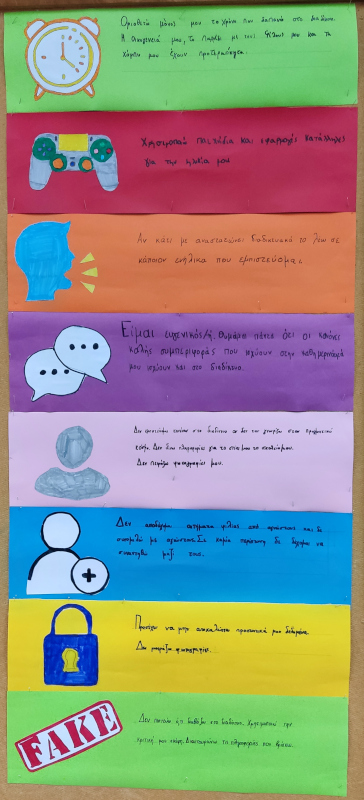 Οριοθετώ μόνος μου το χρόνο που δαπανώ στο διαδίκτυο.
Η οικογένειά μου, το παιχνίδι με τους φίλους μου και τα
χόμπυ μου έχουν προτεραιότητα.
Χρησιμοποιώ παιχνίδια και εφαρμογές κατάλληλες
για την ηλικία μου
Αν κάτι με αναστατώνει διαδικτυακά το λέω σε
κάποιον ενήλικα που εμπιστεύομαι.
Είμαι ευγενικός/ή θυμάμαι πάντα ότι οι κανόνες
καλής συμπεριφοράς που ισχύουν στην καθημερινότητά
μου ισχύουν και στο διαδίκτυο.
Δεν στο διαδίκτυο αν δεν τον γνωρίζω στην πραγματική
ζωή. Δεν δίνω πληροφορίες για το σπίτι μου το σχολείο μου.
Δεν φωτογραφίες μου.
Δεν αποδέχομαι αιτήματα φιλίας από αγνώστους και δε
συνομιλώ με αγνώστους. Σε καμία περίπτωση δε δέχομαι να
συναντηθώ μαζί τους.
Προσέχω να μην αποκαλύπτω προσωπικά μου δεδομένα.
Δε μοιράζω φωτογραφίες.
FAKE
Δεν πιστεύω ό,τι διαβάζω στο διαδίκτυο. Χρησιμοποιώ την
κριτική μου σκέψη. Διασταυρώνω τις πληροφορίες που βρίσκω.